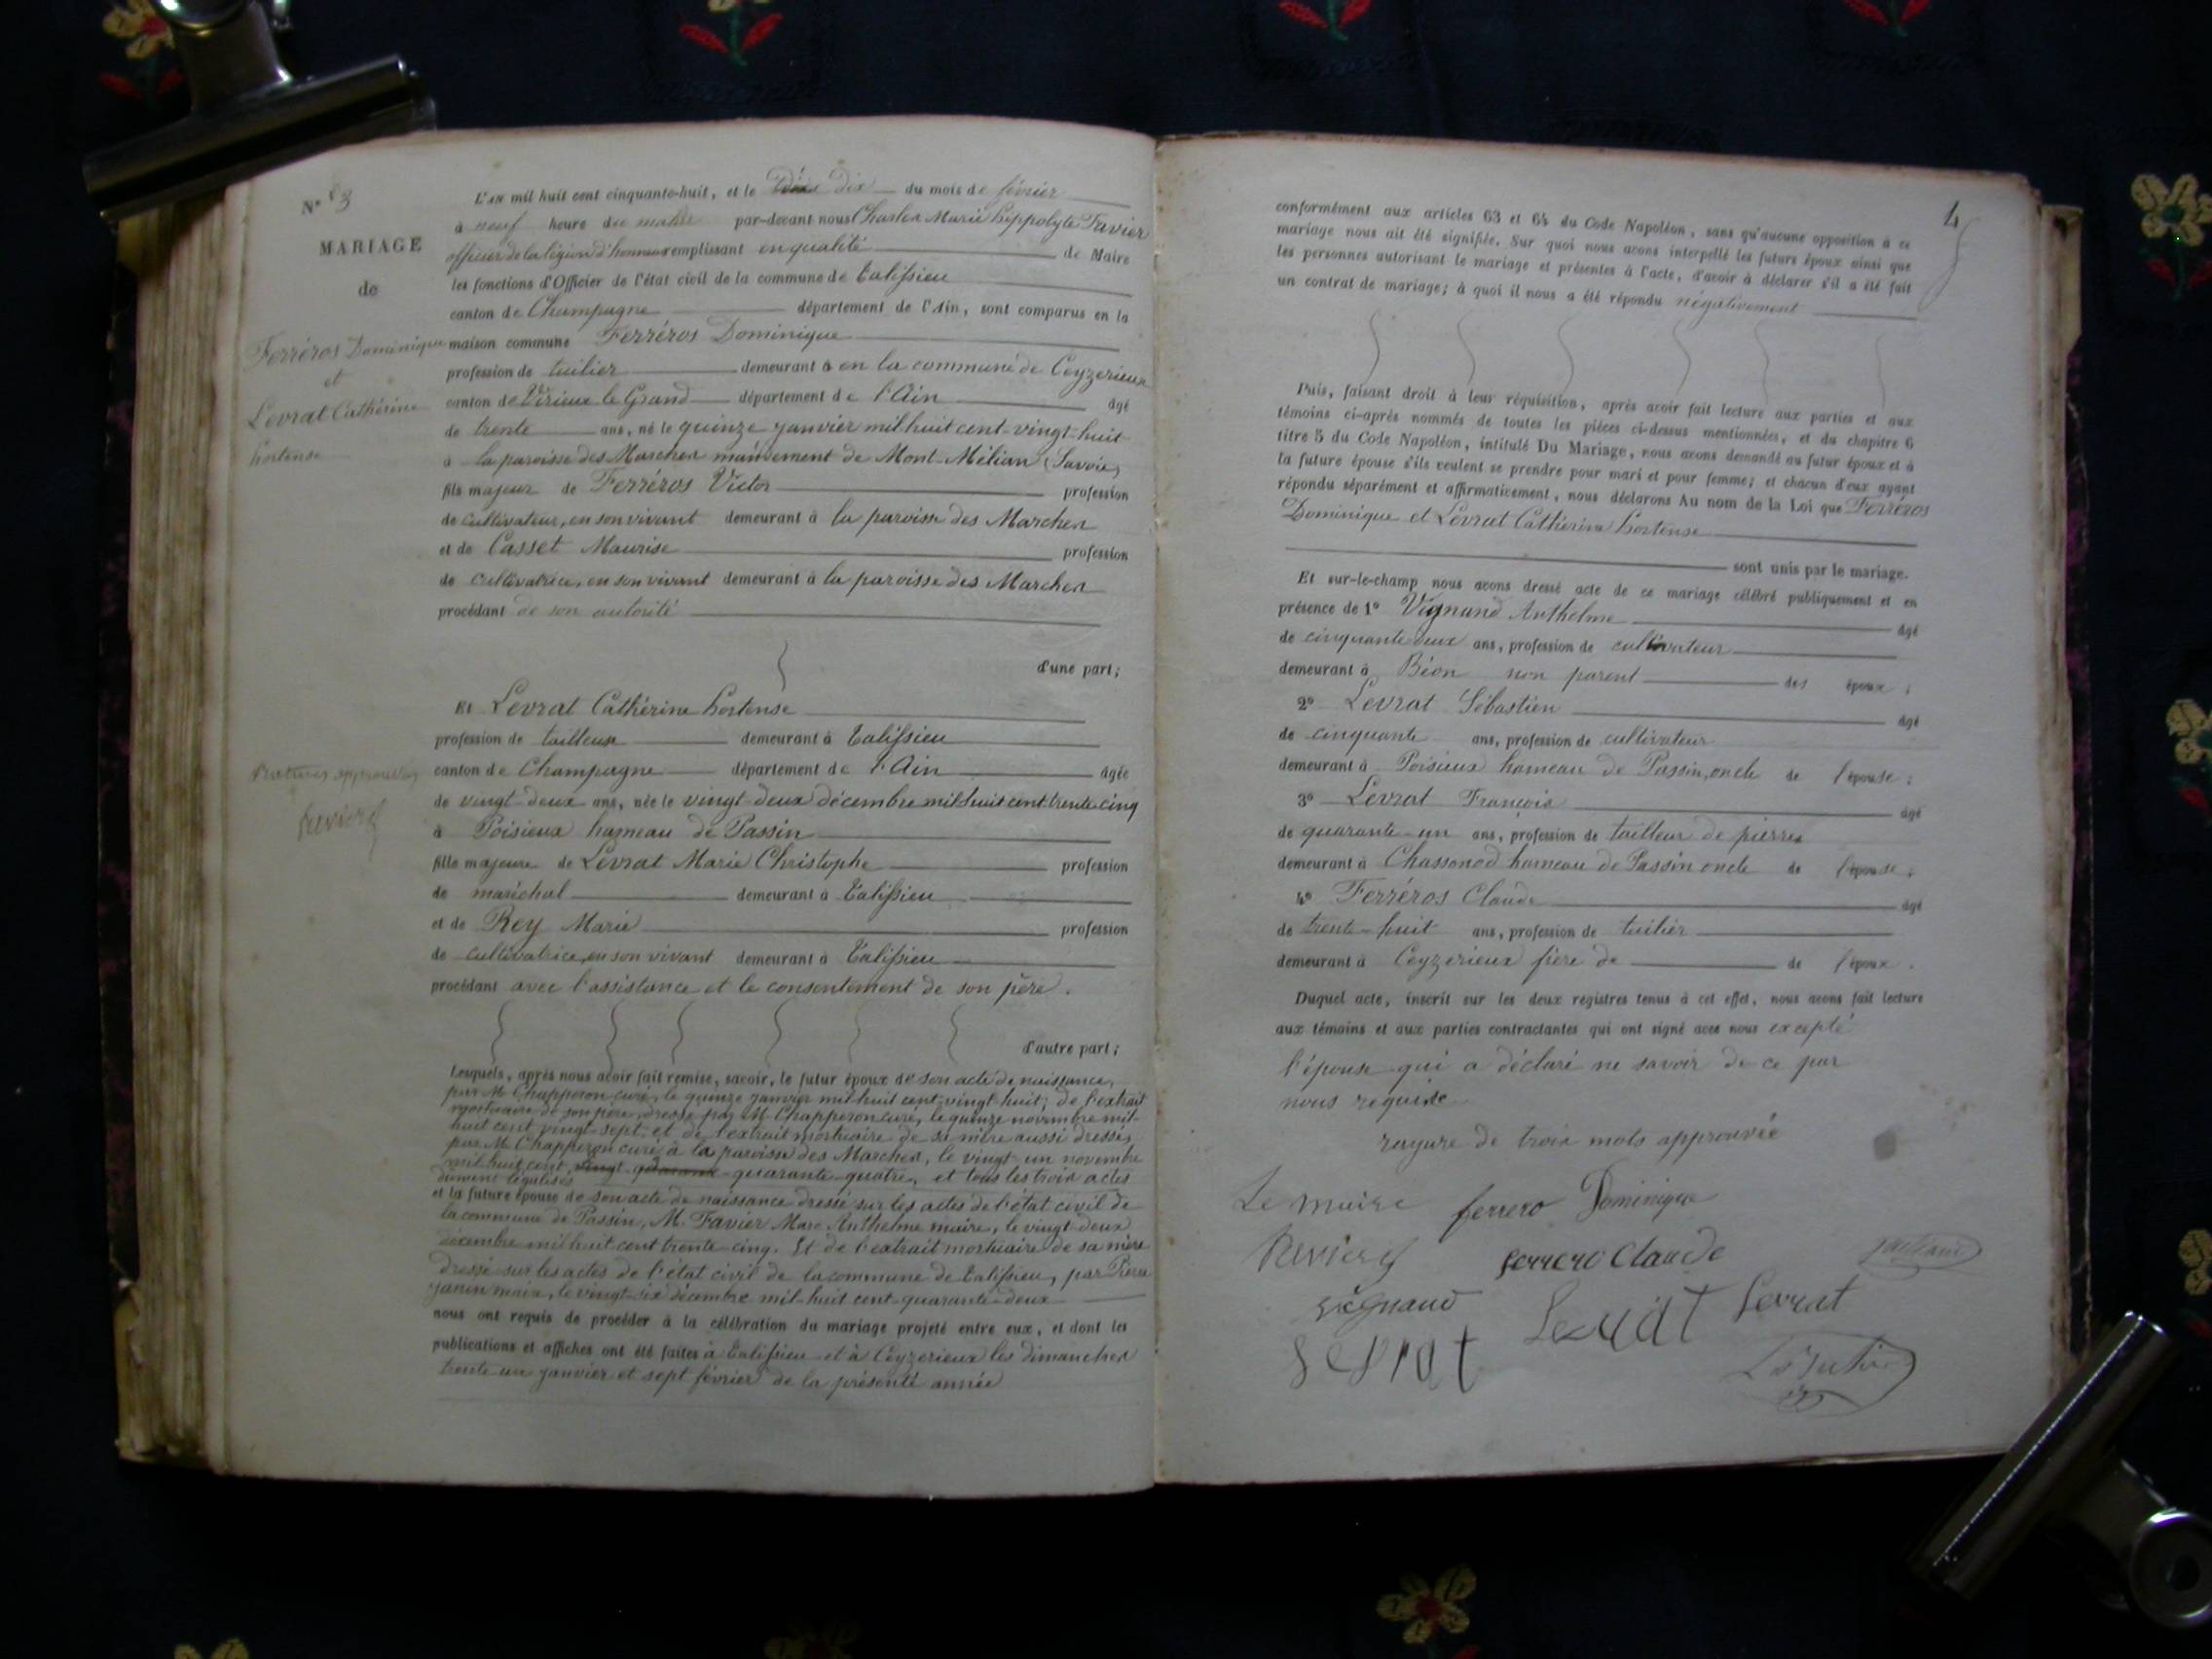 N° 3
MARIAGE
de
Ferréros Dominique
et
Levrat Catherine
hortense
Ratures approuvées
L'an mil huit cent cinquante-huit, et le dix du mois de février
à neuf heure du matin par-devant nous Charles Marie hippolyte Favier
officier de la légion d'honneur remplissant en qualité de Maire
les fonctions d'Officier de l'état civil de la commune de Talissieu
canton de Champagne département de l'Ain, sont comparus en la
maison commune Ferréros Dominique
profession de tuilier demeurant à en la commune de Ceyzerieux
canton de Virieux le Grand département de l'Ain âgé
de trente ans, né le quinze janvier mil huit cent vingt-huit
à la paroisse des Marches mandement de Mont-Mélian (Savoie)
fils majeur de Ferréros Victor profession
de cultivateur, en son vivant demeurant à la paroisse des Marches
et de Casset Maurise profession
de cultivatrice, en son vivant demeurant à la paroisse des Marches
procédant de son autorité
d'une part;
Et Levrat Cathérine hortense
profession de tailleuse demeurant à Talissieu
canton de Champagne département de l'Ain âgée
de vingt-deux ans, née le vingt-deux décembre mil huit cent trente cinq
à Poisieux hameau de Passin
fille majeure de Levrat Marie Christophe profession
de maréchal demeurant à Talissieu
et de Rey Marie profession
de cultivatrice, en son vivant demeurant à Talissieu
procédant avec l'assistance et le consentement de son père.
d'autre part;
Lesquels, après nous avoir fait remise, savoir, le futur époux de son acte de naissance,
par M. Chapperon curé, le quinze janvier mil huit cent vingt-huit; de l'extrait
mortuaire de son père, dressé par M. Chapperon curé, le quinze novembre mil
huit cent vingt-sept, et de l'extrait mortuaire de sa mère aussi dressé,
par M. Chapperon curé à la paroisse des Marches, le vingt-un novembre
mil huit cent, vingt quarante quarante-quatre, et tous les trois actes
dument légalisés
et la future épouse de son acte de naissance dressé sur les actes de l'état civil de
la commune de Passin, M. Favier Marc Anthelme maire, le vingt-deux
décembre mil huit cent trente-cinq. Et de l'extrait mortuaire de sa mère
dressé sur les actes de l'état civil de la commune de Talissieu, par Pierre
Janin maire, le vingt-six décembre mil-huit cent-quarante-deux
nous ont requis de procéder à la célébration du mariage projeté entre eux, et dont les
publications et affiches ont été faites à Talissieu et à Ceyzerieux les dimanches
trente un janvier et sept février de la présente année
4
conformément aux articles 63 et 64 du Code Napoléon, sans qu'aucune opposition à ce
mariage nous ait été signifiée. Sur quoi nous avons interpellé les futurs époux ainsi que
les personnes autorisant le mariage et présentes à l'acte, d'avoir à déclarer s'il a été fait
un contrat de mariage; à quoi il nous a été répondu négativement
Puis, faisant droit à leur réquisition, après avoir fait lecture aux parties et aux
témoins ci-après nommés de toutes les pièces ci-dessus mentionnées, et du chapitre 6
titre 5 du Code Napoléon, intitulé Du Mariage, nous avons demandé au futur époux et à
la future épouse s'ils veulent se prendre pour mari et pour femme; et chacun d'eux ayant
répondu séparément et affirmativement, nous déclarons Au nom de la Loi que Ferréros
Dominique et Levrat Cathérine hortense
sont unis par le mariage.
Et sur-le-champ nous avons dressé acte de ce mariage célébré publiquement et en
présence de 1° Vignand Anthelme âgé
de cinquante deux ans, profession de cultivateur
demeurant à Béon non parent des époux;
2° Levrat Sébastien âgé
de cinquante ans, profession de cultivateur
demeurant à Poisieux hameau de Passin, oncle de l'épouse;
3° Levrat François âgé
de quarante-un ans, profession de tailleur de pierres
demeurant à Chassonod hameau de Passin oncle de l'épouse;
4° Ferréros Claude âgé
de trente-huit ans, profession de tuilier
demeurant à Ceyzerieux frère de de l'époux.
Duquel acte, inscrit sur les deux registres tenus à cet effet, nous avons fait lecture
aux témoins et aux parties contractantes qui ont signé avec nous excepté
l'épouse qui a déclaré ne savoir de ce par
nous requise
rayure de trois mots approuvée
Le maire ferrero Dominique
ferrero Claude
vignand Levrat Levrat
Levrat